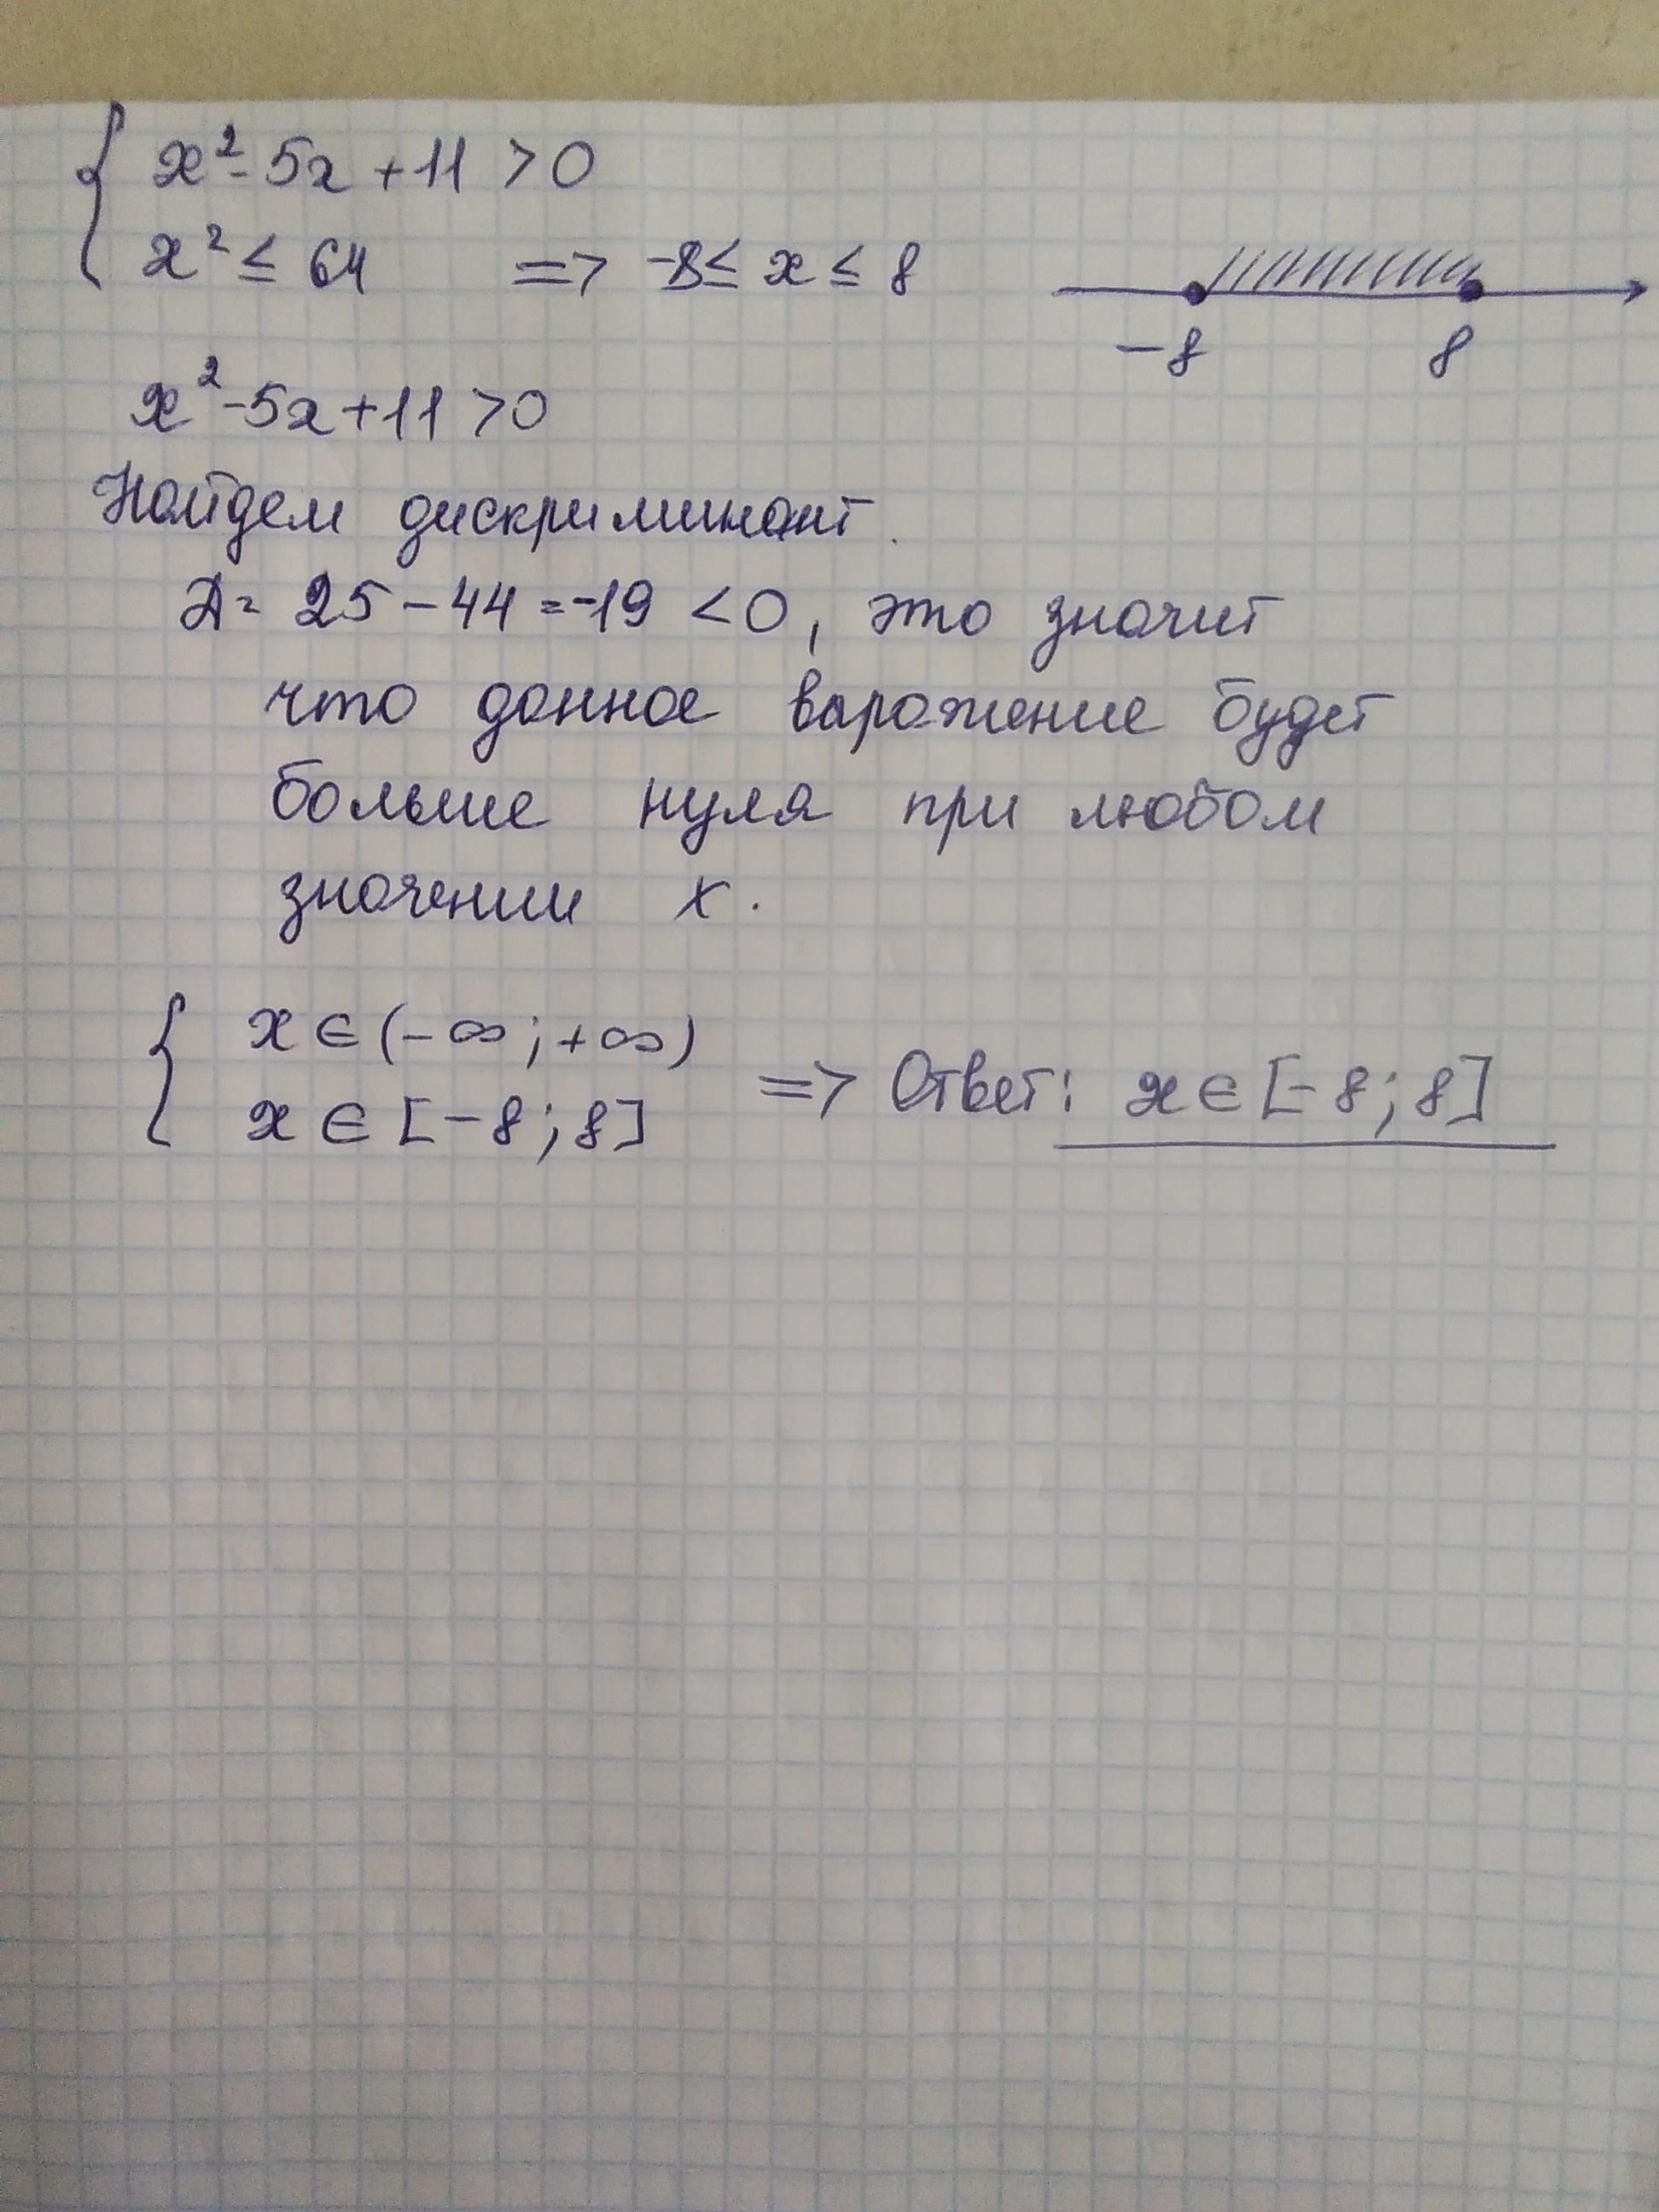 { x² - 5x + 11 > 0
x² ≤ 64 => -8 ≤ x ≤ 8
-8 8
x² - 5x + 11 > 0
Найдем дискриминант.
Д = 25 - 44 = -19 < 0, это значит
что данное выражение будет
больше нуля при любом
значении x.
{ x ∈ (-∞; +∞)
x ∈ [-8; 8] => Ответ: x ∈ [-8; 8]